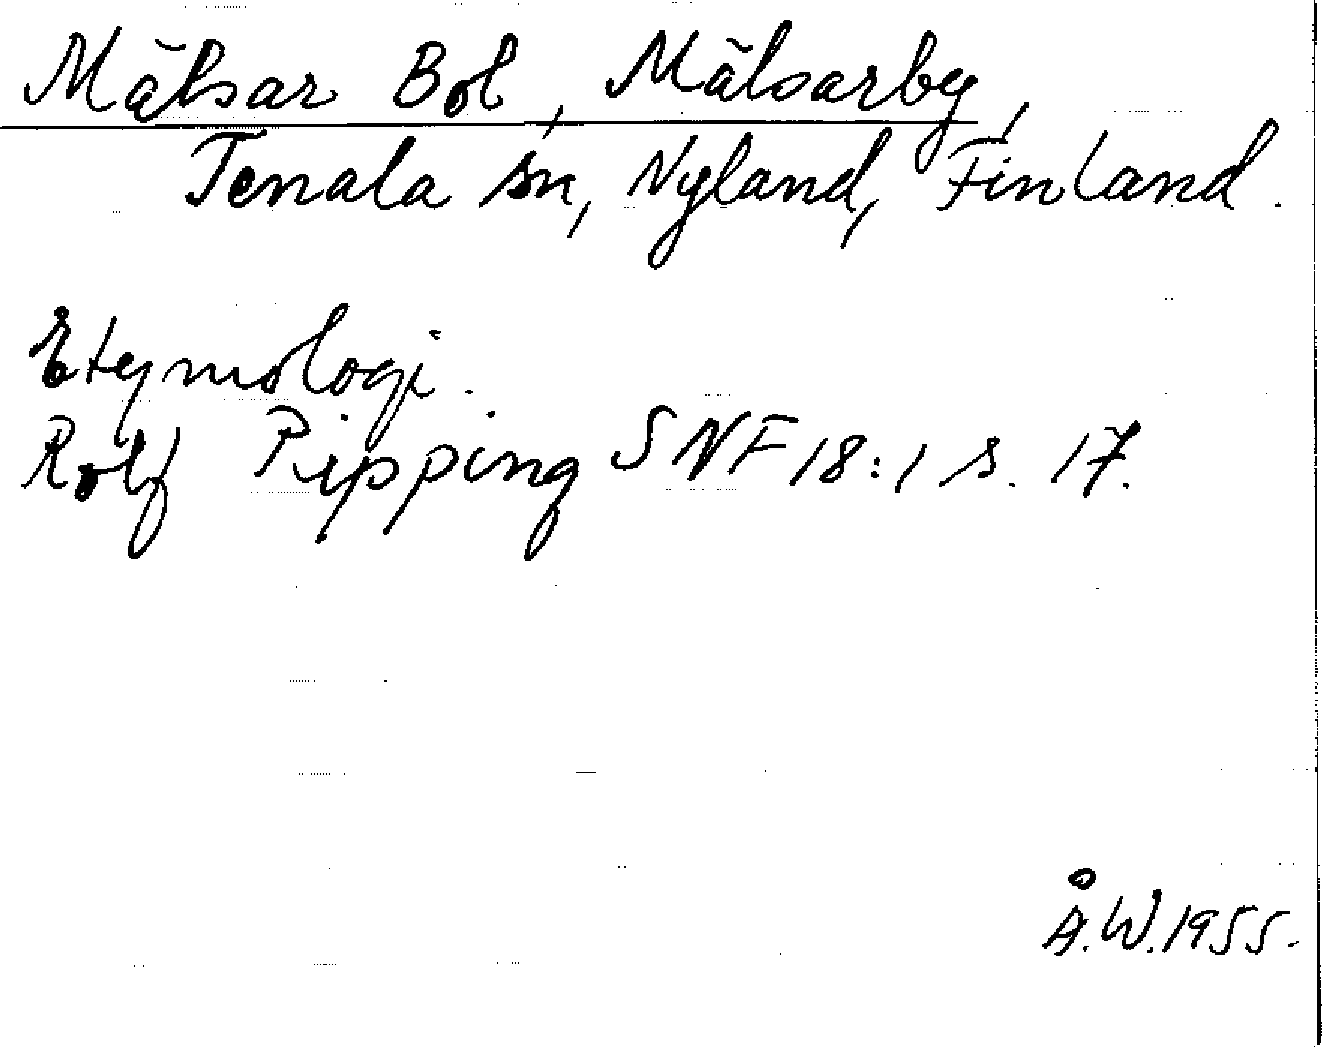 Mälsar Bol, Mälsarby,
Tenala sn, Nyland, Finland.
Etymologi.
Rolf Pipping SNF 18:1 s. 17.
Å.W. 1955.